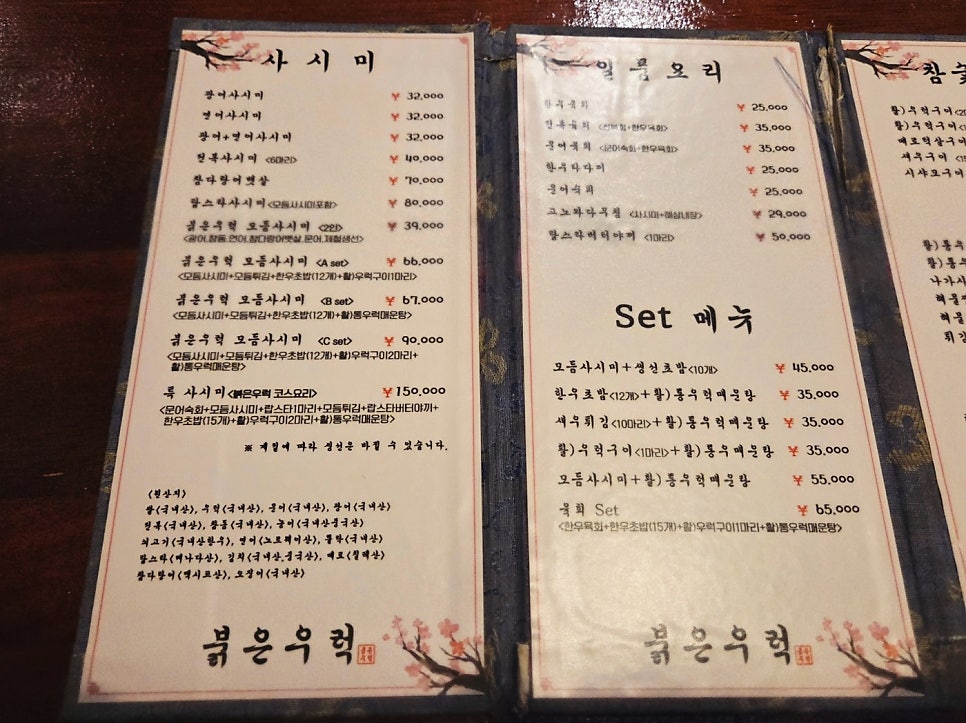 사시미
광어사시미 ￥ 32,000
연어사시미 ￥ 32,000
광어+연어사시미 ￥ 32,000
전복사시미 <6마리> ￥ 40,000
참다랑어뱃살 ￥ 70,000
랍스타사시미<모듬사시미포함> ￥ 80,000
붉은우럭 모듬사시미 <2인> ￥ 39,000
<광어,참돔,연어,참다랑어뱃살,문어,제철생선>
붉은우럭 모듬사시미 <A set> ￥ 66,000
<모듬사시미+모듬튀김+한우초밥(12개)+활)우럭구이1마리>
붉은우럭 모듬사시미 <B set> ￥ 67,000
<모듬사시미+모듬튀김+한우초밥(12개)+활)통우럭매운탕>
붉은우럭 모듬사시미 <C set> ￥ 90,000
<모듬사시미+모듬튀김+한우초밥(12개)+활)우럭구이2마리+
활)통우럭매운탕>
특 사시미<붉은우럭 코스요리> ￥150,000
<문어숙회+모듬사시미+랍스타1마리+모듬튀김+랍스타버터야끼+
한우초밥(15개)+활)우럭구이2마리+활)통우럭매운탕>
※ 계절에 따라 생선은 바뀔 수 있습니다.
<원산지>
쌀(국내산), 우럭(국내산), 문어(국내산), 광어(국내산)
전복(국내산), 참돔(국내산), 농어(국내산중국산)
쇠고기(국내산한우), 연어(노르웨이산), 돌학(국내산)
랍스타(캐나다산), 김치(국내산,중국산), 메로(칠레산)
참다랑어(멕시코산), 오징어(국내산)
붉은우럭
일품요리
한우육회 ￥ 25,000
전복육회 <전복회+한우육회> ￥ 35,000
문어육회 <문어숙회+한우육회> ￥ 35,000
한우타다끼 ￥ 25,000
문어숙회 ￥ 25,000
고노와다무침 <사시미+해삼내장> ￥ 29,000
랍스타버터야끼 <1마리> ￥ 50,000
Set 메뉴
모듬사시미+생선초밥<10개> ￥ 45,000
한우초밥<12개>+활)통우럭매운탕 ￥ 35,000
새우튀김<10마리>+활)통우럭매운탕 ￥ 35,000
활)우럭구이<1마리>+활)통우럭매운탕 ￥ 35,000
모듬사시미+활)통우럭매운탕 ￥ 55,000
육회 Set ￥ 65,000
<한우육회+한우초밥(15개)+활)우럭구이1마리+활)통우럭매운탕>
붉은우럭
참숯
활)우럭구이
활)우럭구이
메로턱살구이
새우구이
시샤모구이
활)통우
활)통우
나가사
해물
해물
튀김